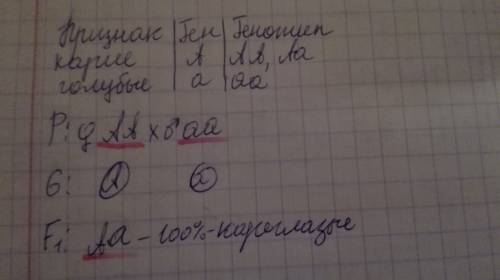 Признак | Ген | Генотип
карие | А | АА, Аа
голубые | а | аа
P: ♀ АА х ♂ аа
G: А а
F₁: Аа - 100% - кареглазые